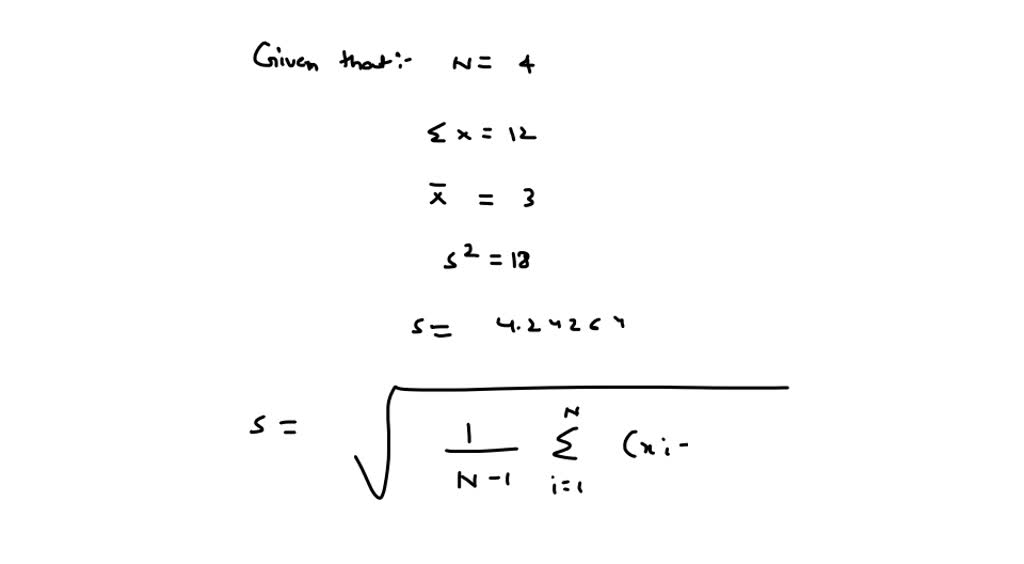 Given that:- N = 4
Σx = 12
x̄ = 3
s² = 18
s = 4.24264
s = √ 1/(N-1) Σ i=1 N (xi -